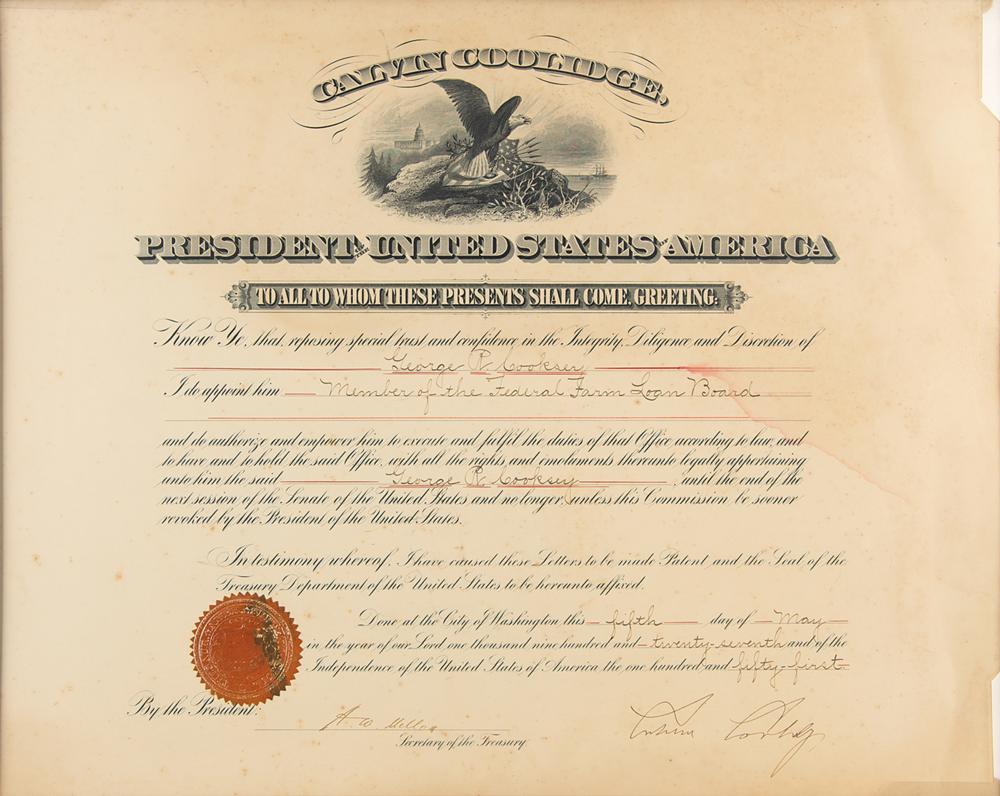 CALVIN COOLIDGE,
PRESIDENT OF THE UNITED STATES OF AMERICA
TO ALL TO WHOM THESE PRESENTS SHALL COME, GREETING:
Know Ye, that, reposing special trust and confidence in the Integrity, Diligence and Discretion of
George R. Cooksey
I do appoint him Member of the Federal Farm Loan Board
and do authorize and empower him to execute and fulfil the duties of that Office according to law, and
to have and to hold the said Office, with all the rights and emoluments thereunto legally appertaining
unto him the said George R. Cooksey, until the end of the
next session of the Senate of the United States, and no longer, unless this Commission be sooner
revoked by the President of the United States.
In testimony whereof, I have caused these Letters to be made Patent, and the Seal of the
Treasury Department of the United States to be hereunto affixed.
Done at the City of Washington this fifth day of May
in the year of our Lord one thousand nine hundred and twenty-seventh and of the
Independence of the United States of America the one hundred and fifty-first.
By the President:
A. W. Mellon
Calvin Coolidge
Secretary of the Treasury.